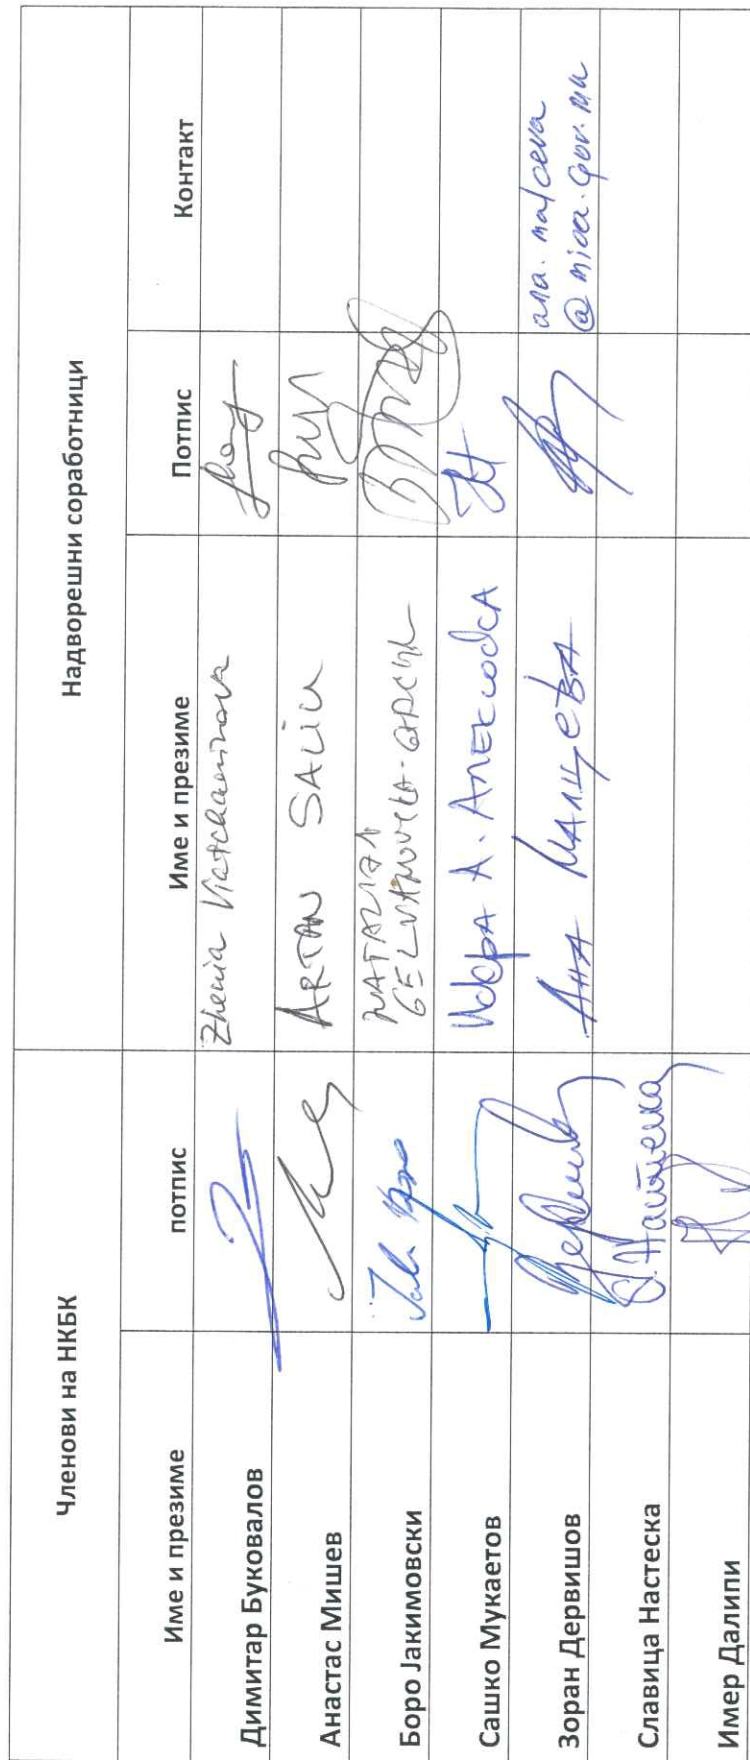 Членови на НКБК
Надворешни соработници
Име и презиме
потпис
Име и презиме
Потпис
Контакт
Димитар Буковалов
Zhenia
Анастас Мишев
ARTAN SALIU
Боро Јакимовски
Сашко Мукаетов
А.
Зоран Дервишов
АНА МАЛЦЕВА
ana.malceva
@mioa.gov.mk
Славица Настеска
С. Настеска
Имер Далипи